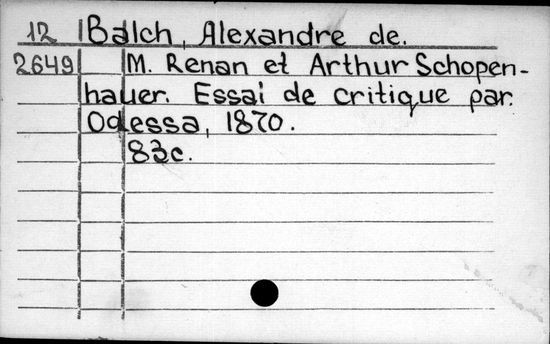 12 Balch, Alexandre de.
2649 M. Renan et Arthur Schopen-
hauer. Essai de critique par.
Odessa, 1870.
83c.